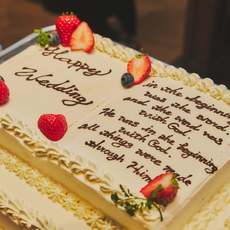 Happy
Wedding
in the beginning
was the word,
and the word was
with God.
He was in the beginning
with God.
all things were made
through Him